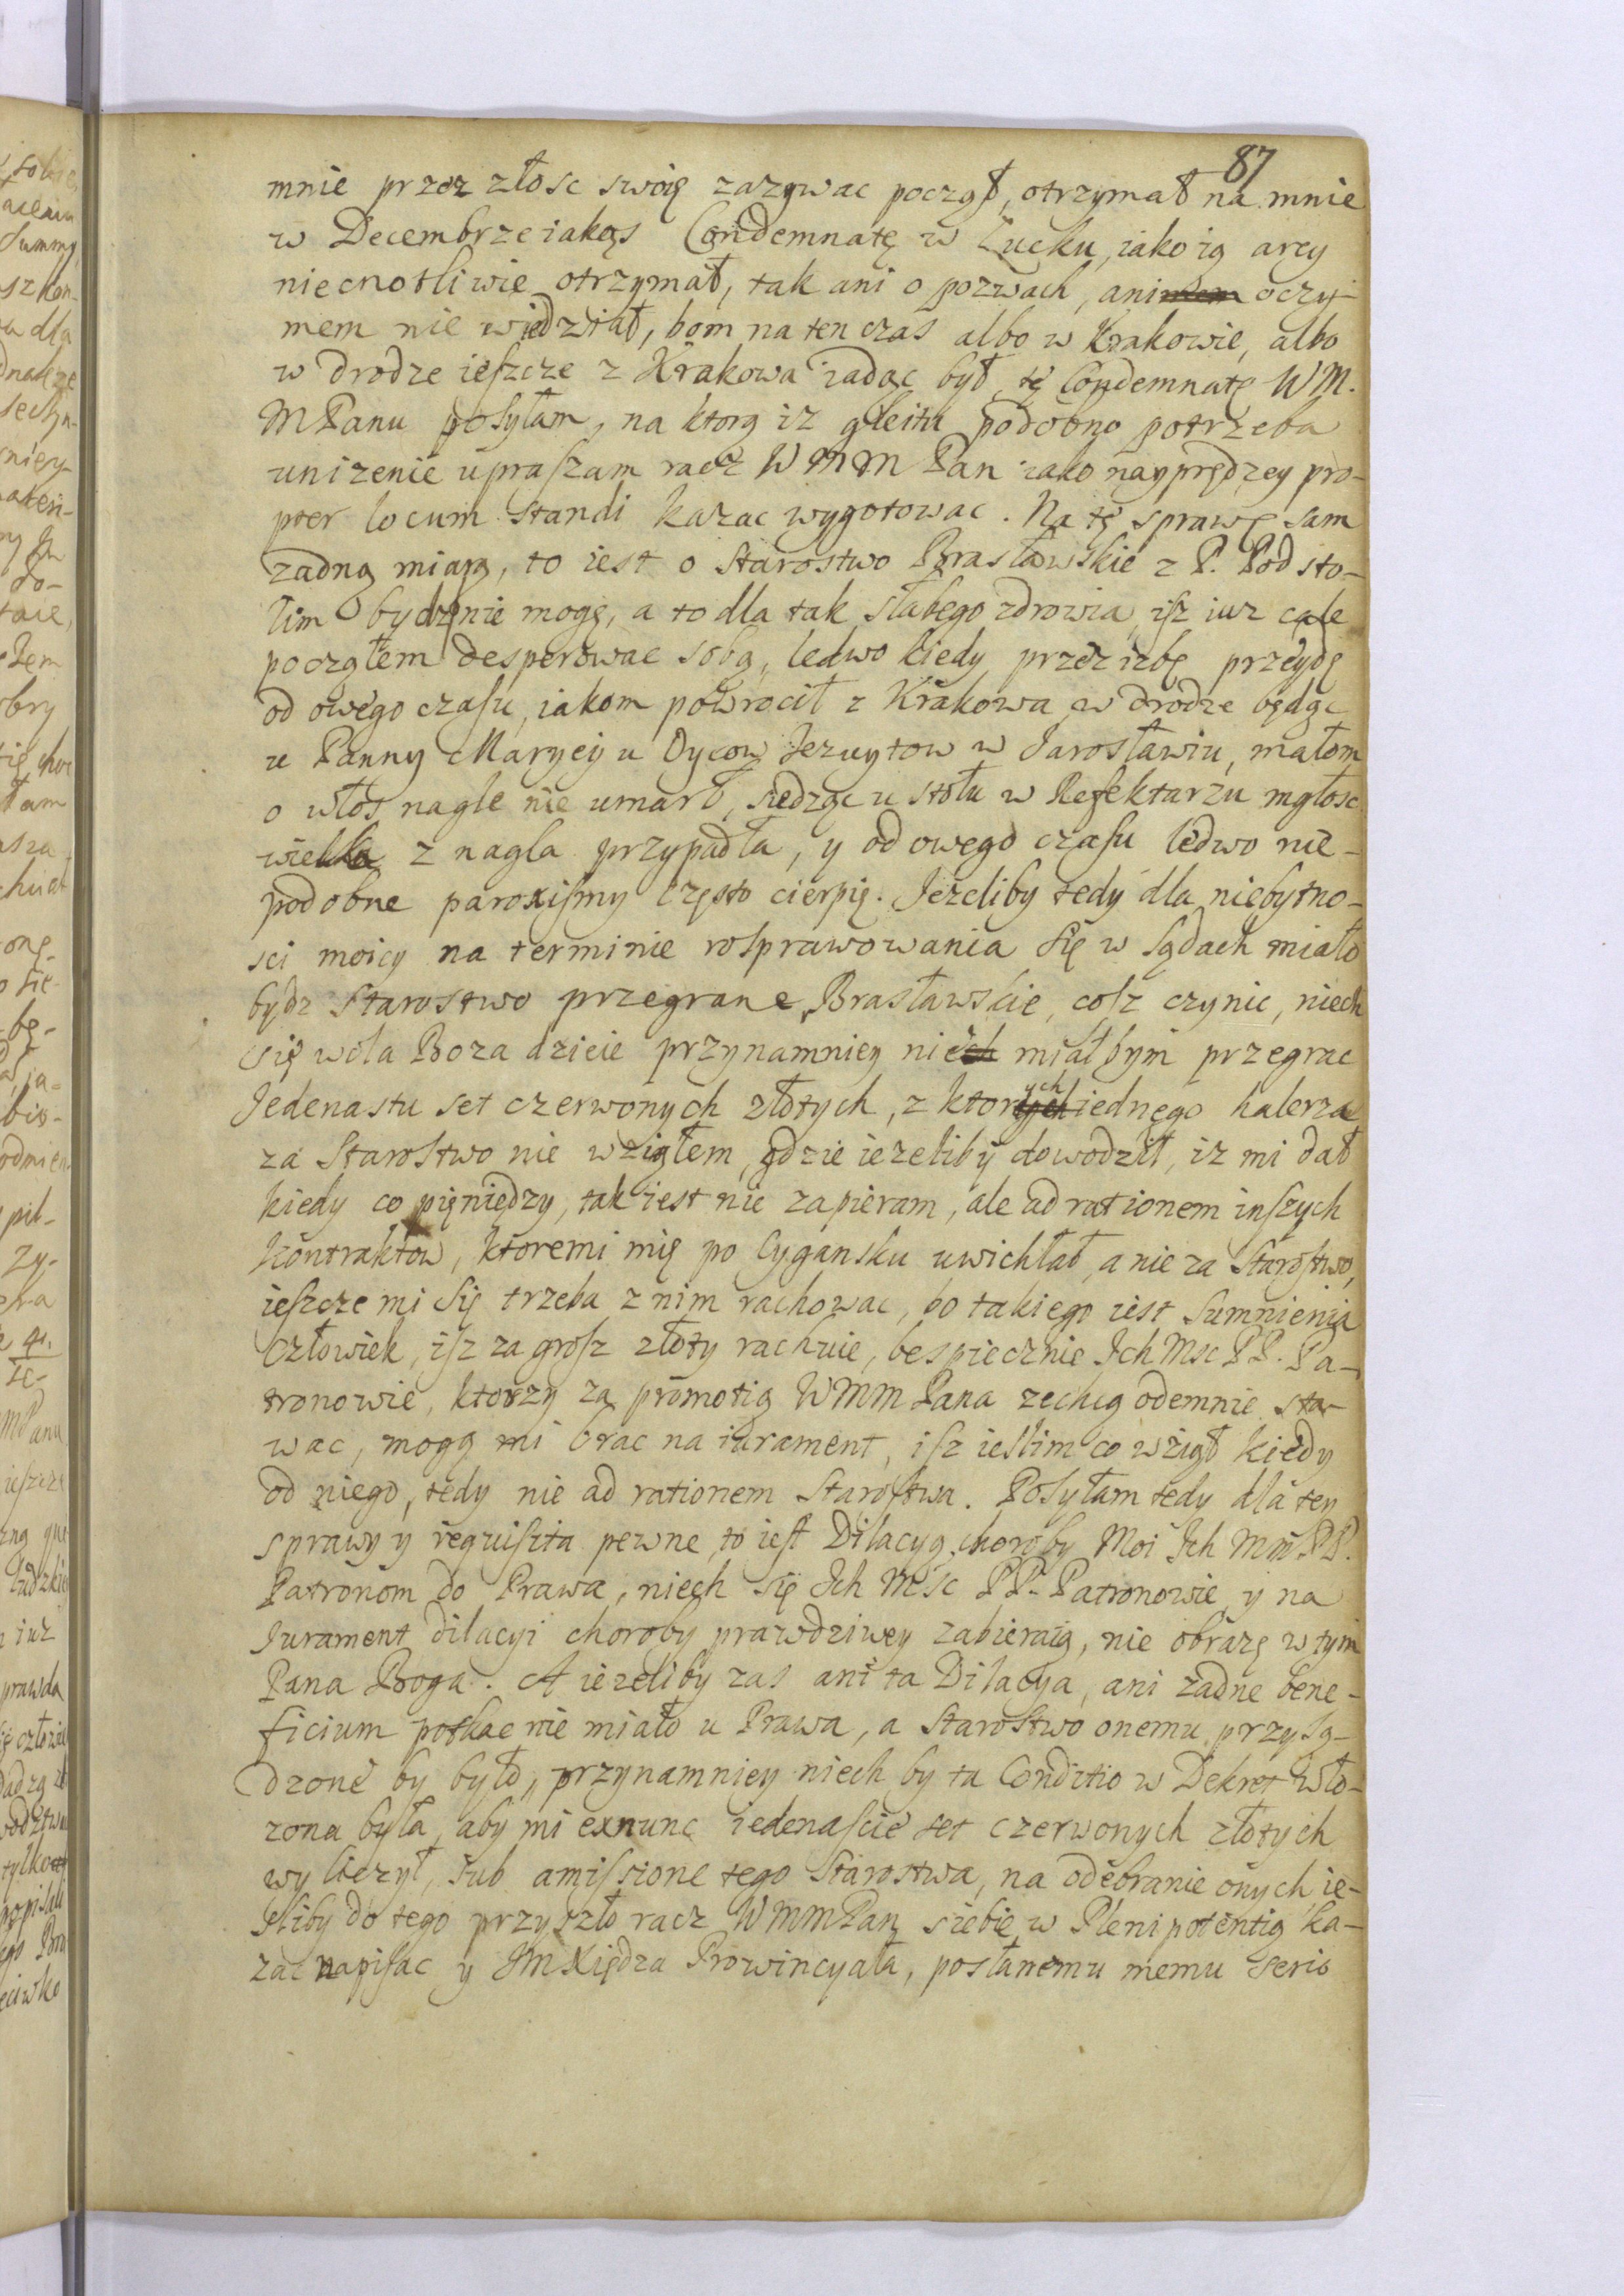 87
mnie przez złosc swoię zazywac począł, otrzymał na mnie
w Decembrze iakąs Condemnatę w Łucku, iako ią arcy
niecnotliwie otrzymał, tak ani o pozwach, ani mem oczy-
mem nie wiedział, bom na ten czas albo w Krakowie, albo
w drodze ieszcze z Krakowa iadąc był, tę Condemnatę WM.
MPanu posyłam, na ktorą iz gleitu podobno potrzeba
unizenie upraszam racz WMM Pan iako nayprędzey pro-
pter locum standi kazac wygotowac. Na tę sprawę sam
zadną miarą, to iest o Starostwo Brasławskie z P. Podsto-
lim bydz nie mogę, a to dla tak słabego zdrowia, isz iuz cale
począłem desperowac sobą, ledwo kiedy przez izbę przeydę
od owego czasu, iakom powrocił z Krakowa, w drodze będąc
u Panny Maryey u Oycow Jezuytow w Jarosławiu, małom
o włos nagle nie umarł, siedząc u stołu w Refektarzu mgłosc
wielka z nagla przypadła, y od owego czasu ledwo nie-
podobne paroxismy często cierpię. Jezeliby tedy dla niebytno-
sci moiey na terminie rosprawowania się w sądach miało
bydz Starostwo przegrane Brasławskie, cosz czynic, niech
się wola Boza dzieie przynamniey niech miałbym przegrac
Jedenastu set czerwonych złotych, z ktorych ych iednego halerza
za Starostwo nie wziąłem, gdzie iezeliby dowodził, iz mi dał
kiedy co pięniędzy, tak iest nie zapieram, ale ad rationem inszych
Kontraktow, ktoremi mię po Cygansku uwichłał, a nie za Starostwo,
ieszcze mi się trzeba z nim rachowac, bo takiego iest sumnienia
człowiek, isz za grosz złoty rachuie, bespiecznie Ich Msc PP. Pa-
tronowie, ktorzy za promotią WMM Pana zechcą odemnie sta-
wac, mogą mi brac na iurament, isz ieslim co wziął kiedy
od niego, tedy nie ad rationem Starostwa. Posyłam tedy dla tey
sprawy y requisita pewne, to iest Dilacyą choroby Moi Ich Mm PP.
Patronom do Prawa, niech się Ich Msc PP. Patronowie y na
Iurament dilacyi choroby prawdziwey zabieraią, nie obrazę w tym
Pana Boga. A iezeliby zas ani ta Dilacya, ani zadne bene-
ficium potkac nie miało u Prawa, a Starostwo onemu przysą-
dzone by było, przynamniey niech by ta Conditio w Dekret wło-
zona była, aby mi exnunc iedenascie set czerwonych złotych
wyliczył, sub amissione tego Starostwa, na odebranie onych ie-
sliby do tego przyszło racz WMMPan siebie w Plenipotentią ka-
zac napisac y JM Xiędza Prowincyała, posłanemu memu serio